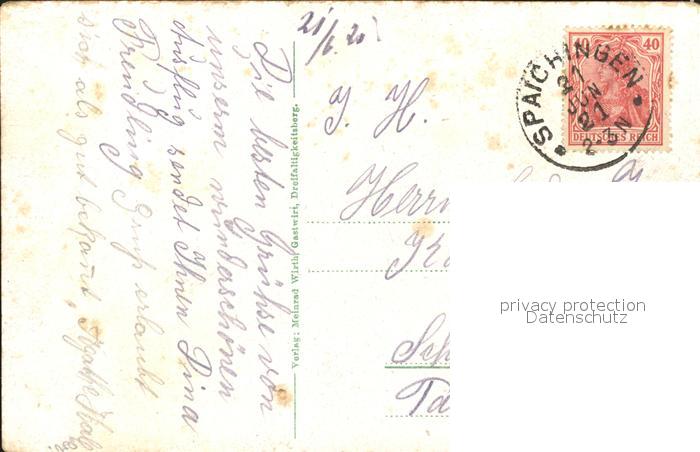 21/6 21
Die besten Grühse von
unserm wunderschönen
Ausflug sendet Ihnen Dina
Fremdling Gruß erlaubt
sich als gut bekannt, Agathe
Verlag: Meinrad Wirth, Gastwirt, Dreifaltigkeitsberg.
40 40
DEUTSCHES REICH
SPAICHINGEN
21 JUN 21
2-3 N
Herrn
Sch
privacy protection
Datenschutz